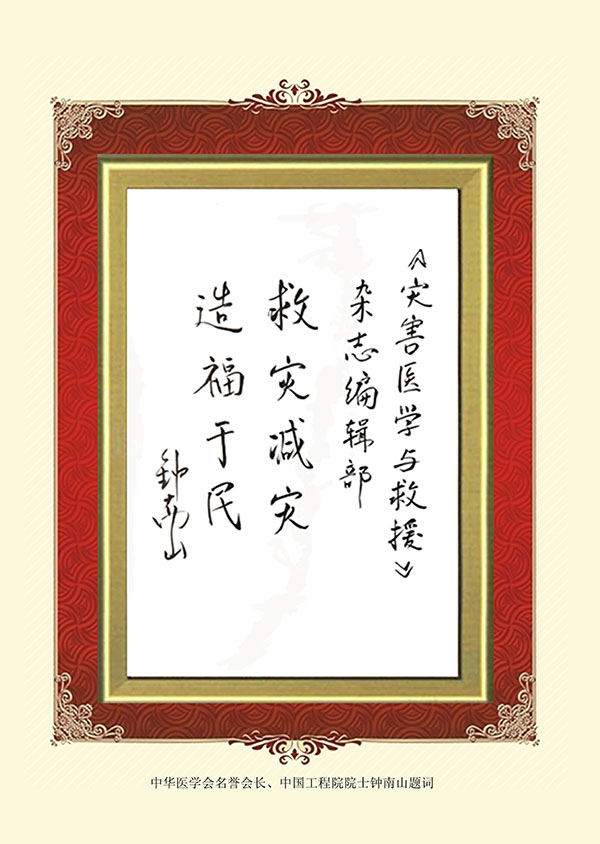 《灾害医学与救援》
杂志编辑部
救灾减灾
造福于民
钟南山
中华医学会名誉会长、中国工程院院士钟南山题词